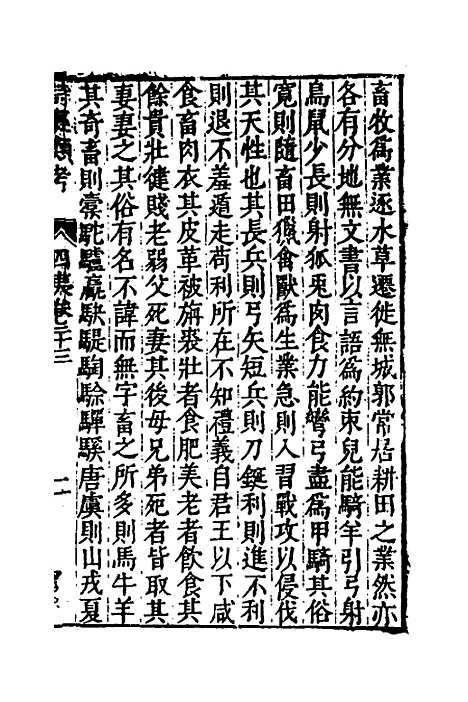 畜牧爲業逐水草遷徙無城郭常居耕田之業然亦
各有分地無文書以言語爲約束兒能騎羊引弓射
鳥鼠少長則射狐兎肉食力能彎弓盡爲甲騎其俗
寛則隨畜田獵食獸爲生業急則人習戰攻以侵伐
其天性也其長兵則弓矢短兵則刀鋋利則進不利
則退不羞遁走苟利所在不知禮義自君王以下咸
食畜肉衣其皮革被旃裘壯者食肥美老者飲食其
餘貴壯健賤老弱父死妻其後母兄弟死者皆取其
妻妻之其俗有名不諱而無字畜之所多則馬牛羊
其奇畜則橐駝驢驘駃騠騊駼驒騱唐虞則山戎夏
類考 四集卷二十三 二